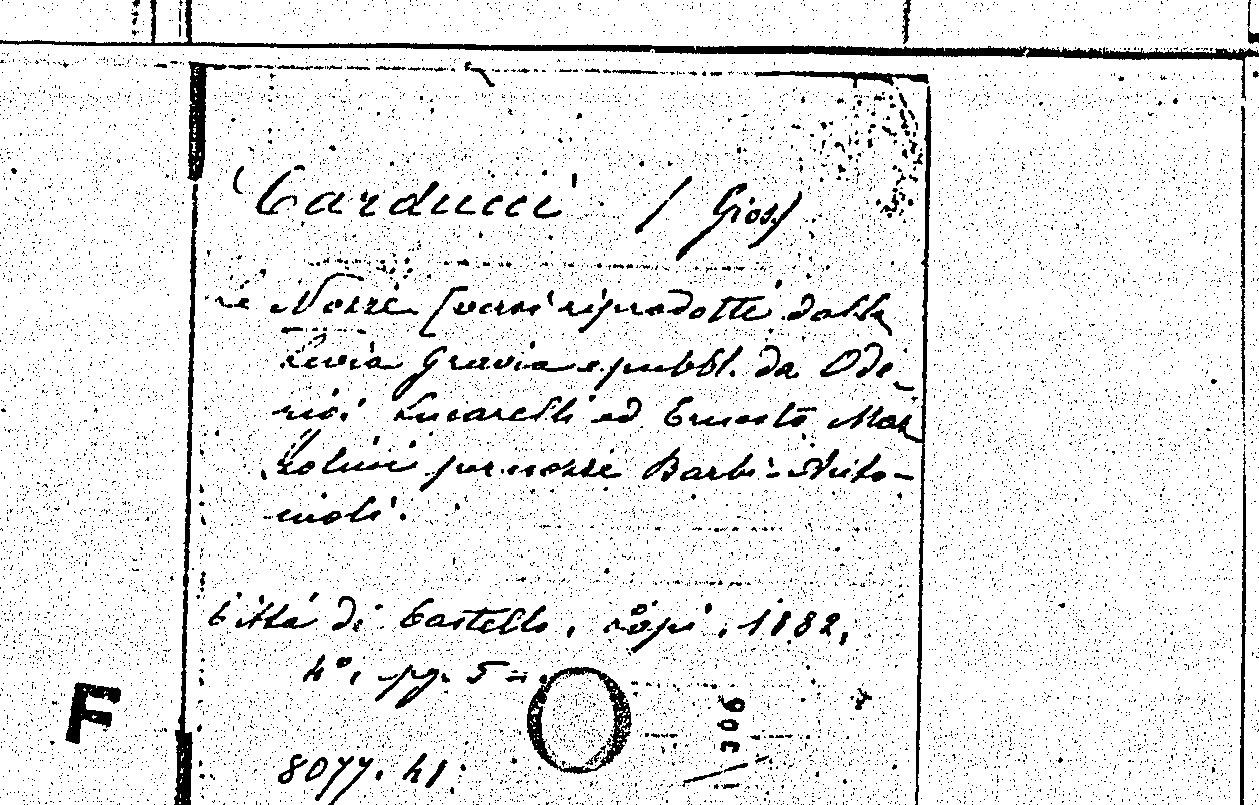 Carducci (Gios.)
Le Nozze (versi riprodotti dalle
Levia Gravia e pubbl. da Ode-
risi Lucarelli ed Ernesto Mar
zolini per nozze Barbi-
noli.
Città di Castello, Lapi, 1882,
4°, pg. 5 =.
F
306
8077. 41.